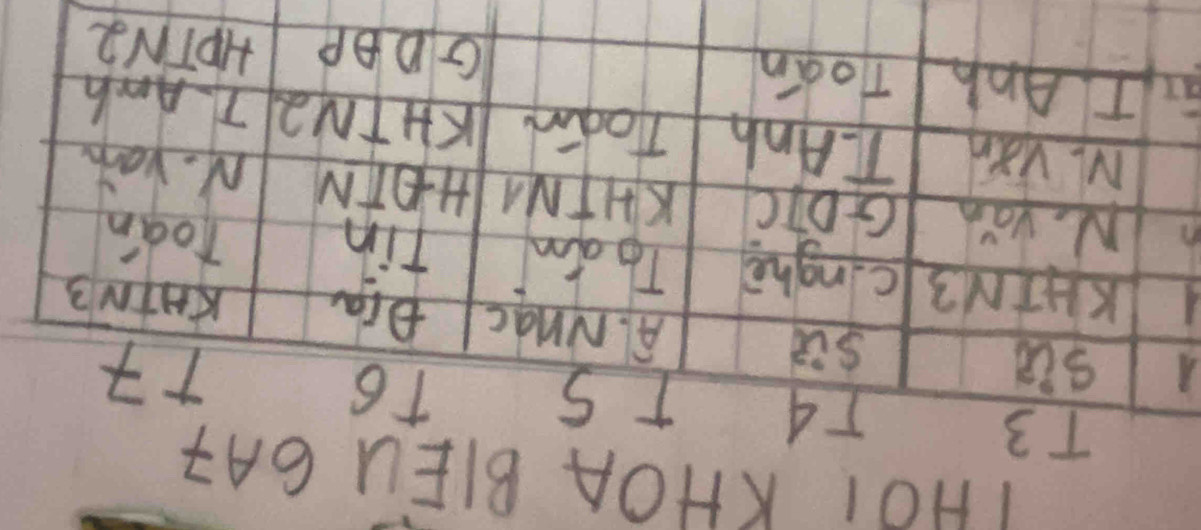 THOI KHOA BIEU 6A7
T3 T4 T5 T6 T7
Sử Sử Â.Nhạc Địa KHTN3
KHTN3 C.nghệ Toán Tin Toán
N.Văn GDTC KHTN1 HĐTN N.Văn
N.Văn T.Anh Toán KHTN2 T.Anh
T.Anh Toán GDĐP HĐTN2